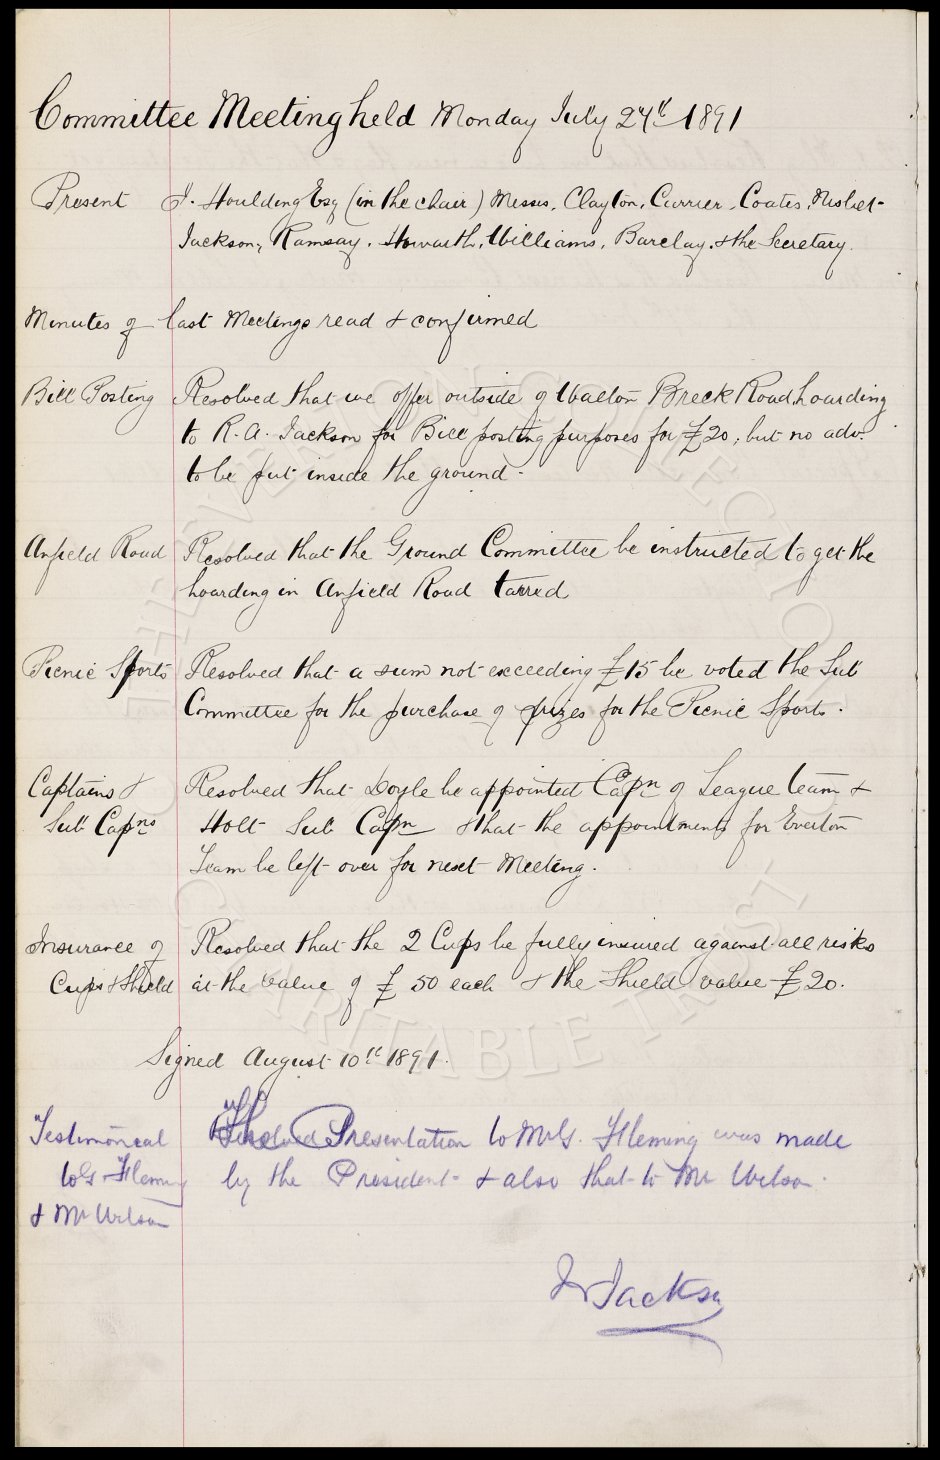 Committee Meeting held Monday July 24th 1891
Present J. Houlding Esq (in the chair) Messrs. Clayton, Currier, Coates, Nisbet
Jackson, Ramsay, Howarth, Williams, Barclay, & the Secretary.
Minutes of last Meetings read & confirmed
Bill Posting Resolved that we offer outside of Walton Breck Road hoarding
to R. A. Jackson for Bill posting purposes for £20, but no adv.
to be put inside the ground.
Anfield Road Resolved that the Ground Committee be instructed to get the
hoarding in Anfield Road tarred
Picnic Sports Resolved that a sum not exceeding £15 be voted the Sub
Committee for the purchase of prizes for the Picnic Sports.
Captains & Resolved that Doyle be appointed Capn of League team &
Sub Capns Holt Sub Capn & that the appointments for Everton
Team be left over for next Meeting.
Insurance of Resolved that the 2 Cups be fully insured against all risks
Cups & Shield at the value of £50 each & the Shield value £20.
Signed August 10th 1891.
Testimonial The Presentation to Mr G. Fleming was made
to G Fleming by the President & also that to Mr Wilson.
& Mr Wilson
Jackson
LIVERPOOL EVERTON COLLECTION
CHARITABLE TRUST